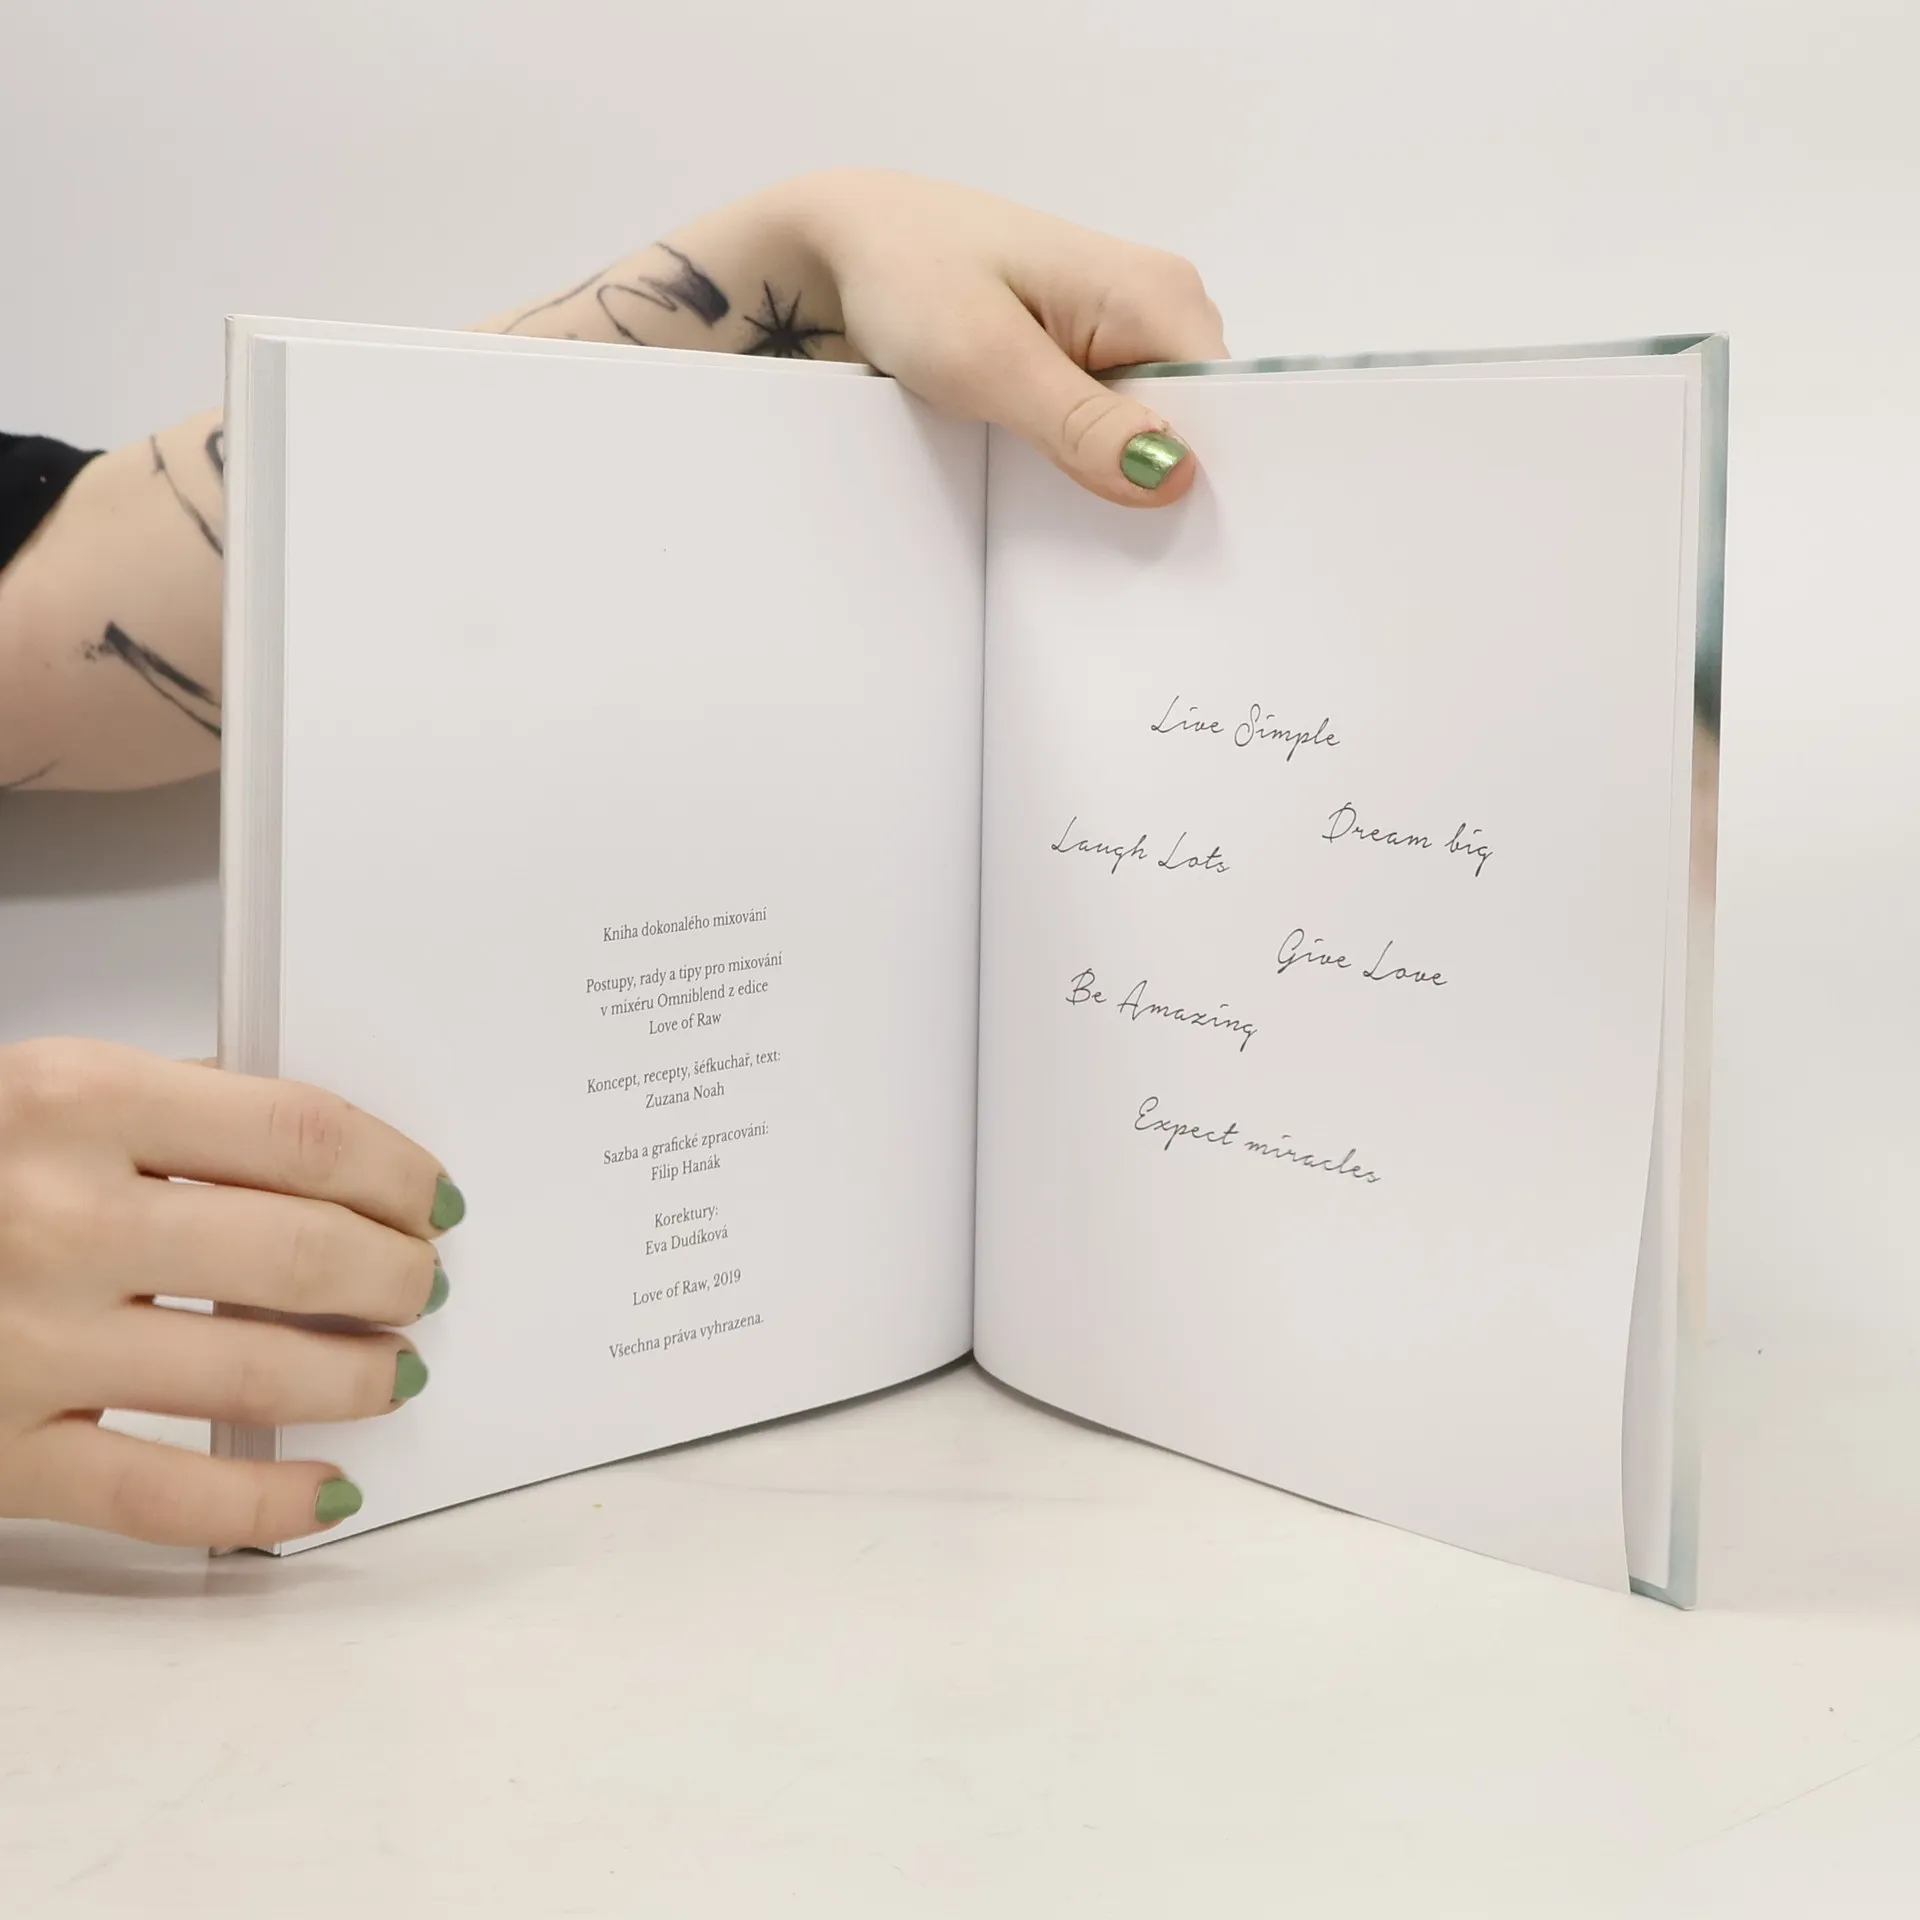 Kniha dokonalého mixování
Postupy, rady a tipy pro mixování
v mixéru Omniblend z edice
Love of Raw
Koncept, recepty, šéfkuchař, text:
Zuzana Noah
Sazba a grafické zpracování:
Filip Hanák
Korektury:
Eva Dudíková
Love of Raw, 2019
Všechna práva vyhrazena.
Live Simple
Dream big
Laugh Lots
Give Love
Be Amazing
Expect miracles